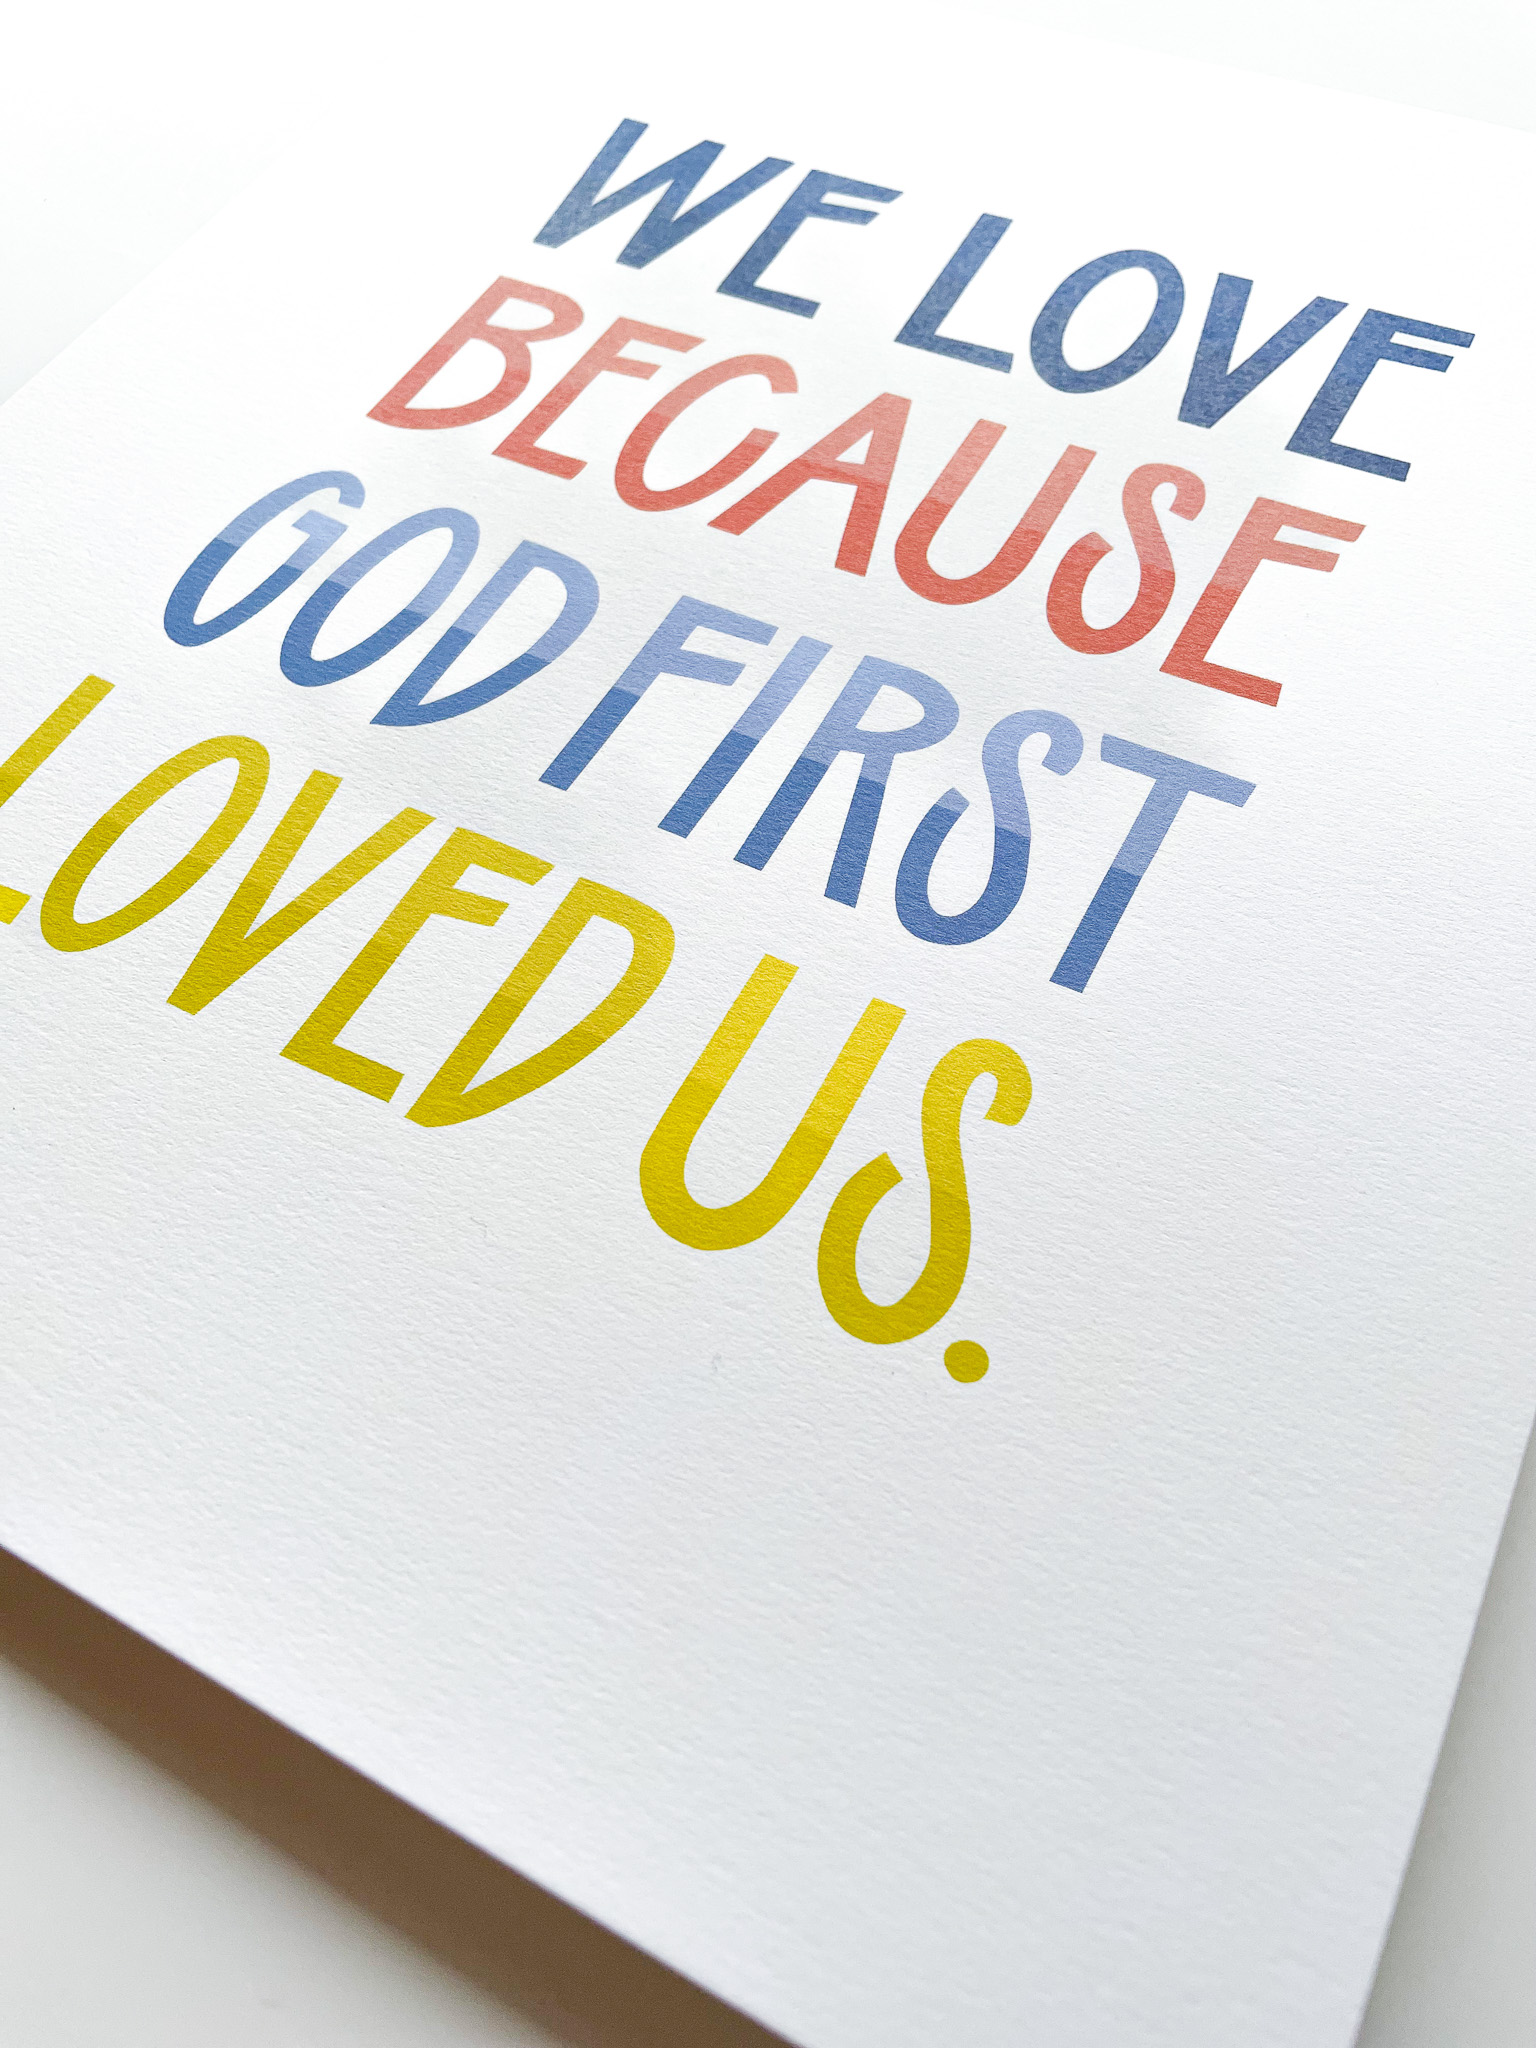 WE LOVE
BECAUSE
GOD FIRST
LOVED US.